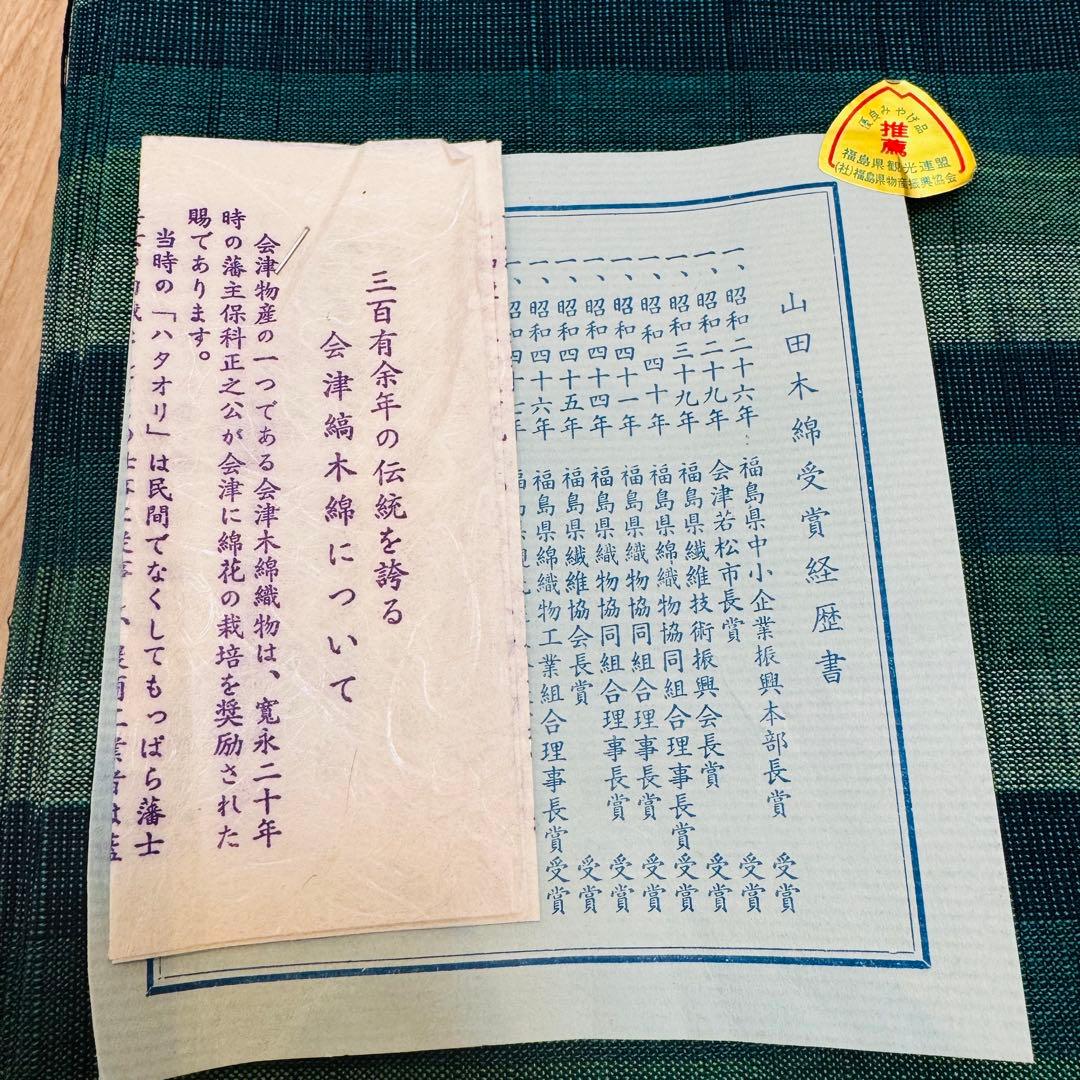 優良みやげ品
推薦
福島県観光連盟
(社)福島県物産振興協会
山田木綿受賞経歴書
一、昭和二十六年 福島県中小企業振興本部長賞 受賞
一、昭和二十九年 会津若松市長賞 受賞
一、昭和三十九年 福島県繊維技術振興会長賞 受賞
一、昭和四十年 福島県綿織物協同組合理事長賞 受賞
一、昭和四十一年 福島県織物協同組合理事長賞 受賞
一、昭和四十四年 福島県織物協同組合理事長賞 受賞
一、昭和四十五年 福島県繊維協会長賞 受賞
一、昭和四十六年 福島県綿織物工業組合理事長賞 受賞
三百有余年の伝統を誇る
会津縞木綿について
会津物産の一つである会津木綿織物は、寛永二十年
時の藩主保科正之公が会津に綿花の栽培を奨励された
賜であります。
当時の「ハタオリ」は民間でなくしてもっぱら藩士